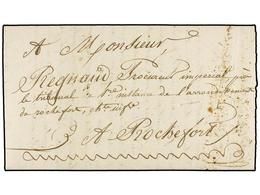 A Monsieur,
Regnaud Procureur impérial près
le tribunal de 1re instance de l'arrondissement
de rochefort, chte infre
A Rochefort